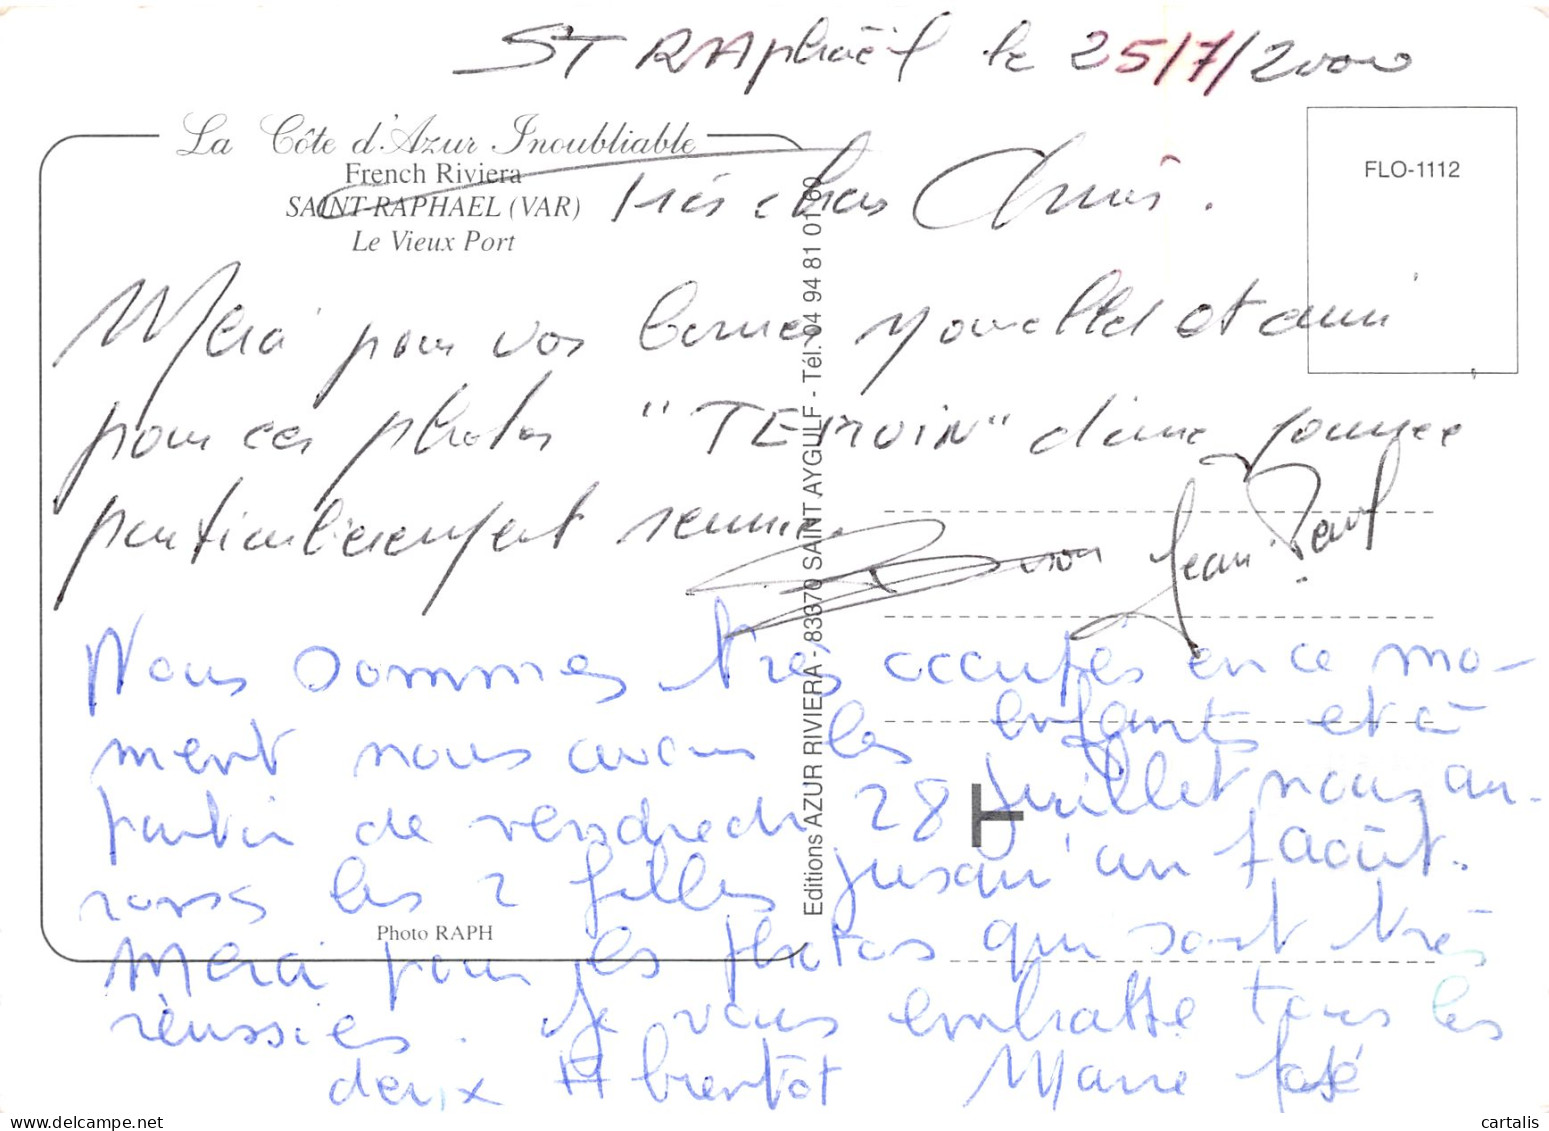 ST RAphaël le 25/7/2000
La Côte d'Azur Inoubliable
French Riviera
SAINT-RAPHAEL (VAR)
Le Vieux Port
FLO-1112
très chers Amis.
Merci pour vos bonnes nouvelles et aussi
pour ces photos "TEMOIN" d'une journée
particulièrement réussie.
Jean Paul
Nous sommes très occupés en ce mo-
ment nous avons les enfants et à
partir de vendredi 28 juillet nous au-
rons les 2 filles jusqu'au 7 août.
Merci pour les photos qui sont très
réussies. Je vous embrasse tous les
deux A bientôt Marie José
Photo RAPH
Editions AZUR RIVIERA - 83370 SAINT AYGULF - Tél. 04 94 81 01 60
T
cartalis